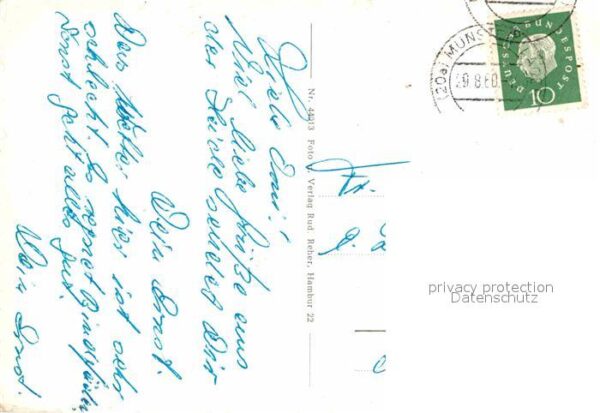 Liebe Omi!
Viel liebe Grüße aus
der Heide sendet Dir
Dein Ernst.
Das Wetter hier ist sehr
schlecht. Es regnet Bindfäden
Sonst geht alles gut.
Dein Ernst.
Nr. 44913 Foto u. Verlag Rud. Reher, Hambur 22
(20a) MUNST
9.8.60
DEUTSCHE BUNDESPOST
10
privacy protection
Datenschutz